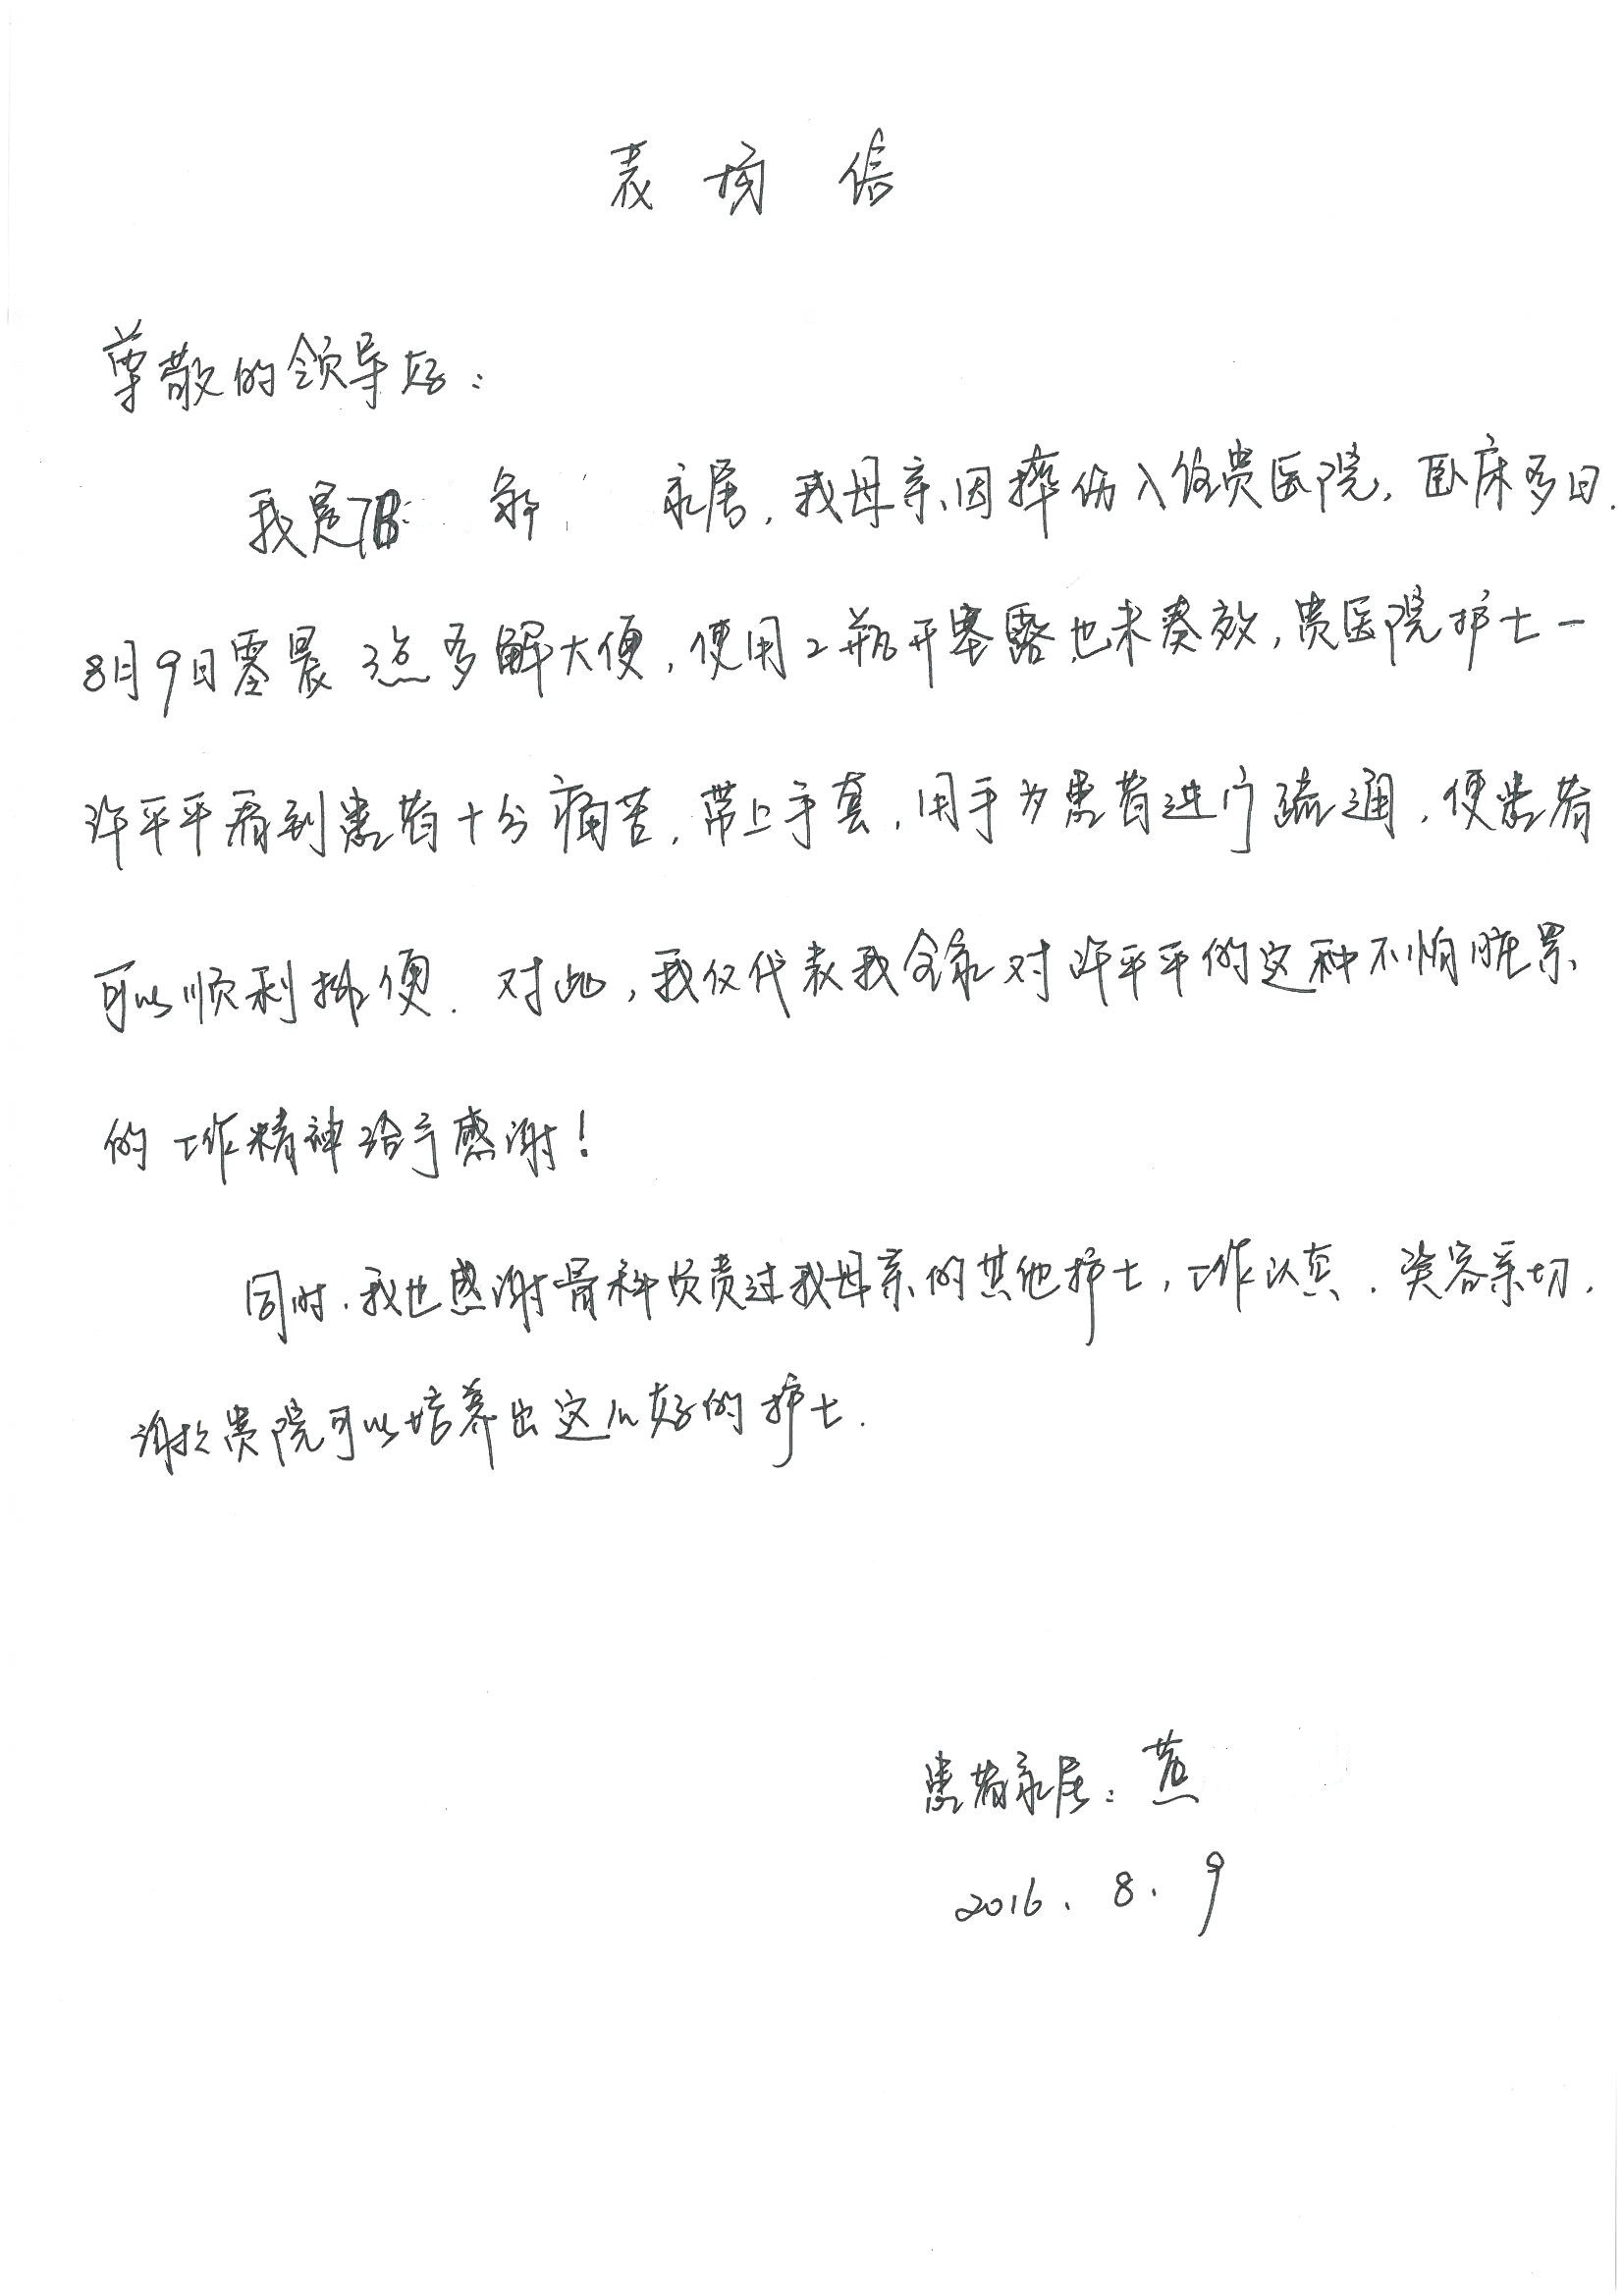 表扬信
尊敬的领导好:
我是7B 余 家属,我母亲因摔伤入住贵医院,卧床多日.
8月9日零晨3点多解大便,使用2瓶开塞露也未奏效,贵医院护士一
许平平看到患者十分痛苦,带上手套,用手为患者进行疏通,使患者
可以顺利排便.对此,我仅代表我全家对许平平的这种不怕脏累
的工作精神给予感谢!
同时,我也感谢骨科负责过我母亲的其他护士,工作认真.笑容亲切.
谢谢贵院可以培养出这么好的护士.
患者家属:
2016.8.9